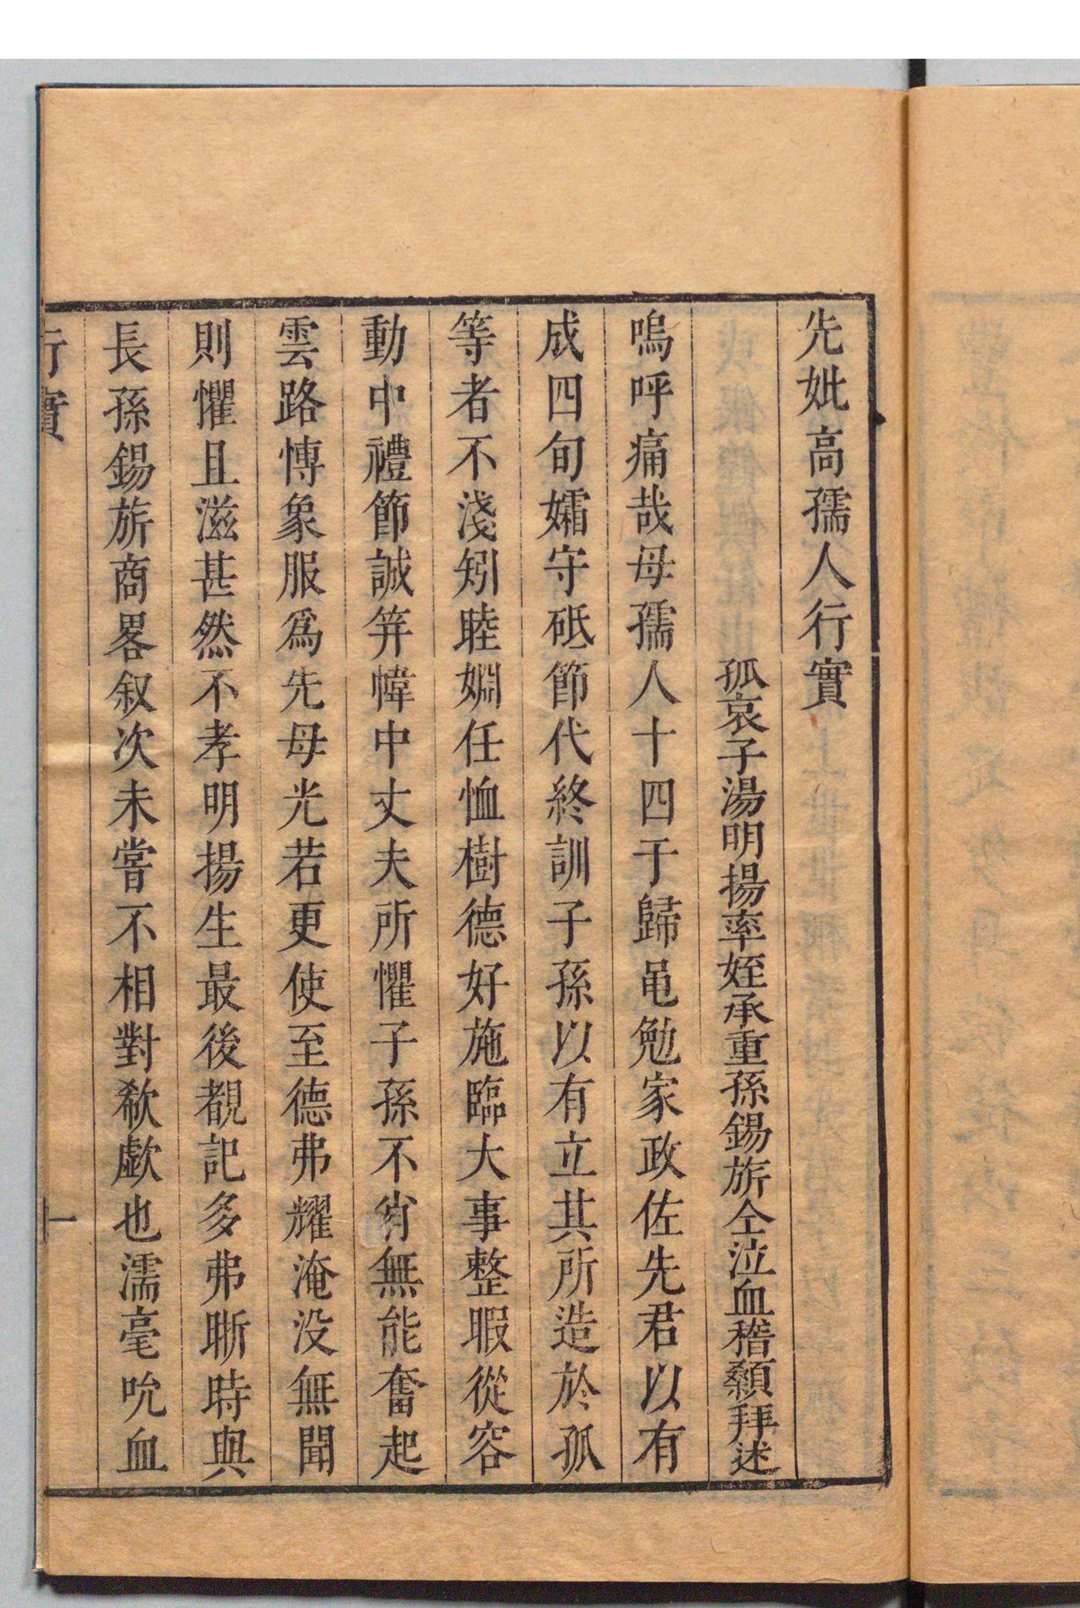 先妣高孺人行實
孤哀子湯明揚率姪承重孫錫旂仝泣血稽顙拜述
嗚呼痛哉母孺人十四于歸黽勉家政佐先君以有
成四旬孀守砥節代終訓子孫以有立其所造於孤
等者不淺矧睦婣任恤樹德好施臨大事整暇從容
動中禮節誠筓幃中丈夫所懼子孫不肖無能奮起
雲路慱象服爲先母光若更使至德弗耀淹没無聞
則懼且滋甚然不孝明揚生最後覩記多弗晰時與
長孫錫旂商畧叙次未嘗不相對欷歔也濡毫吮血
行實
一